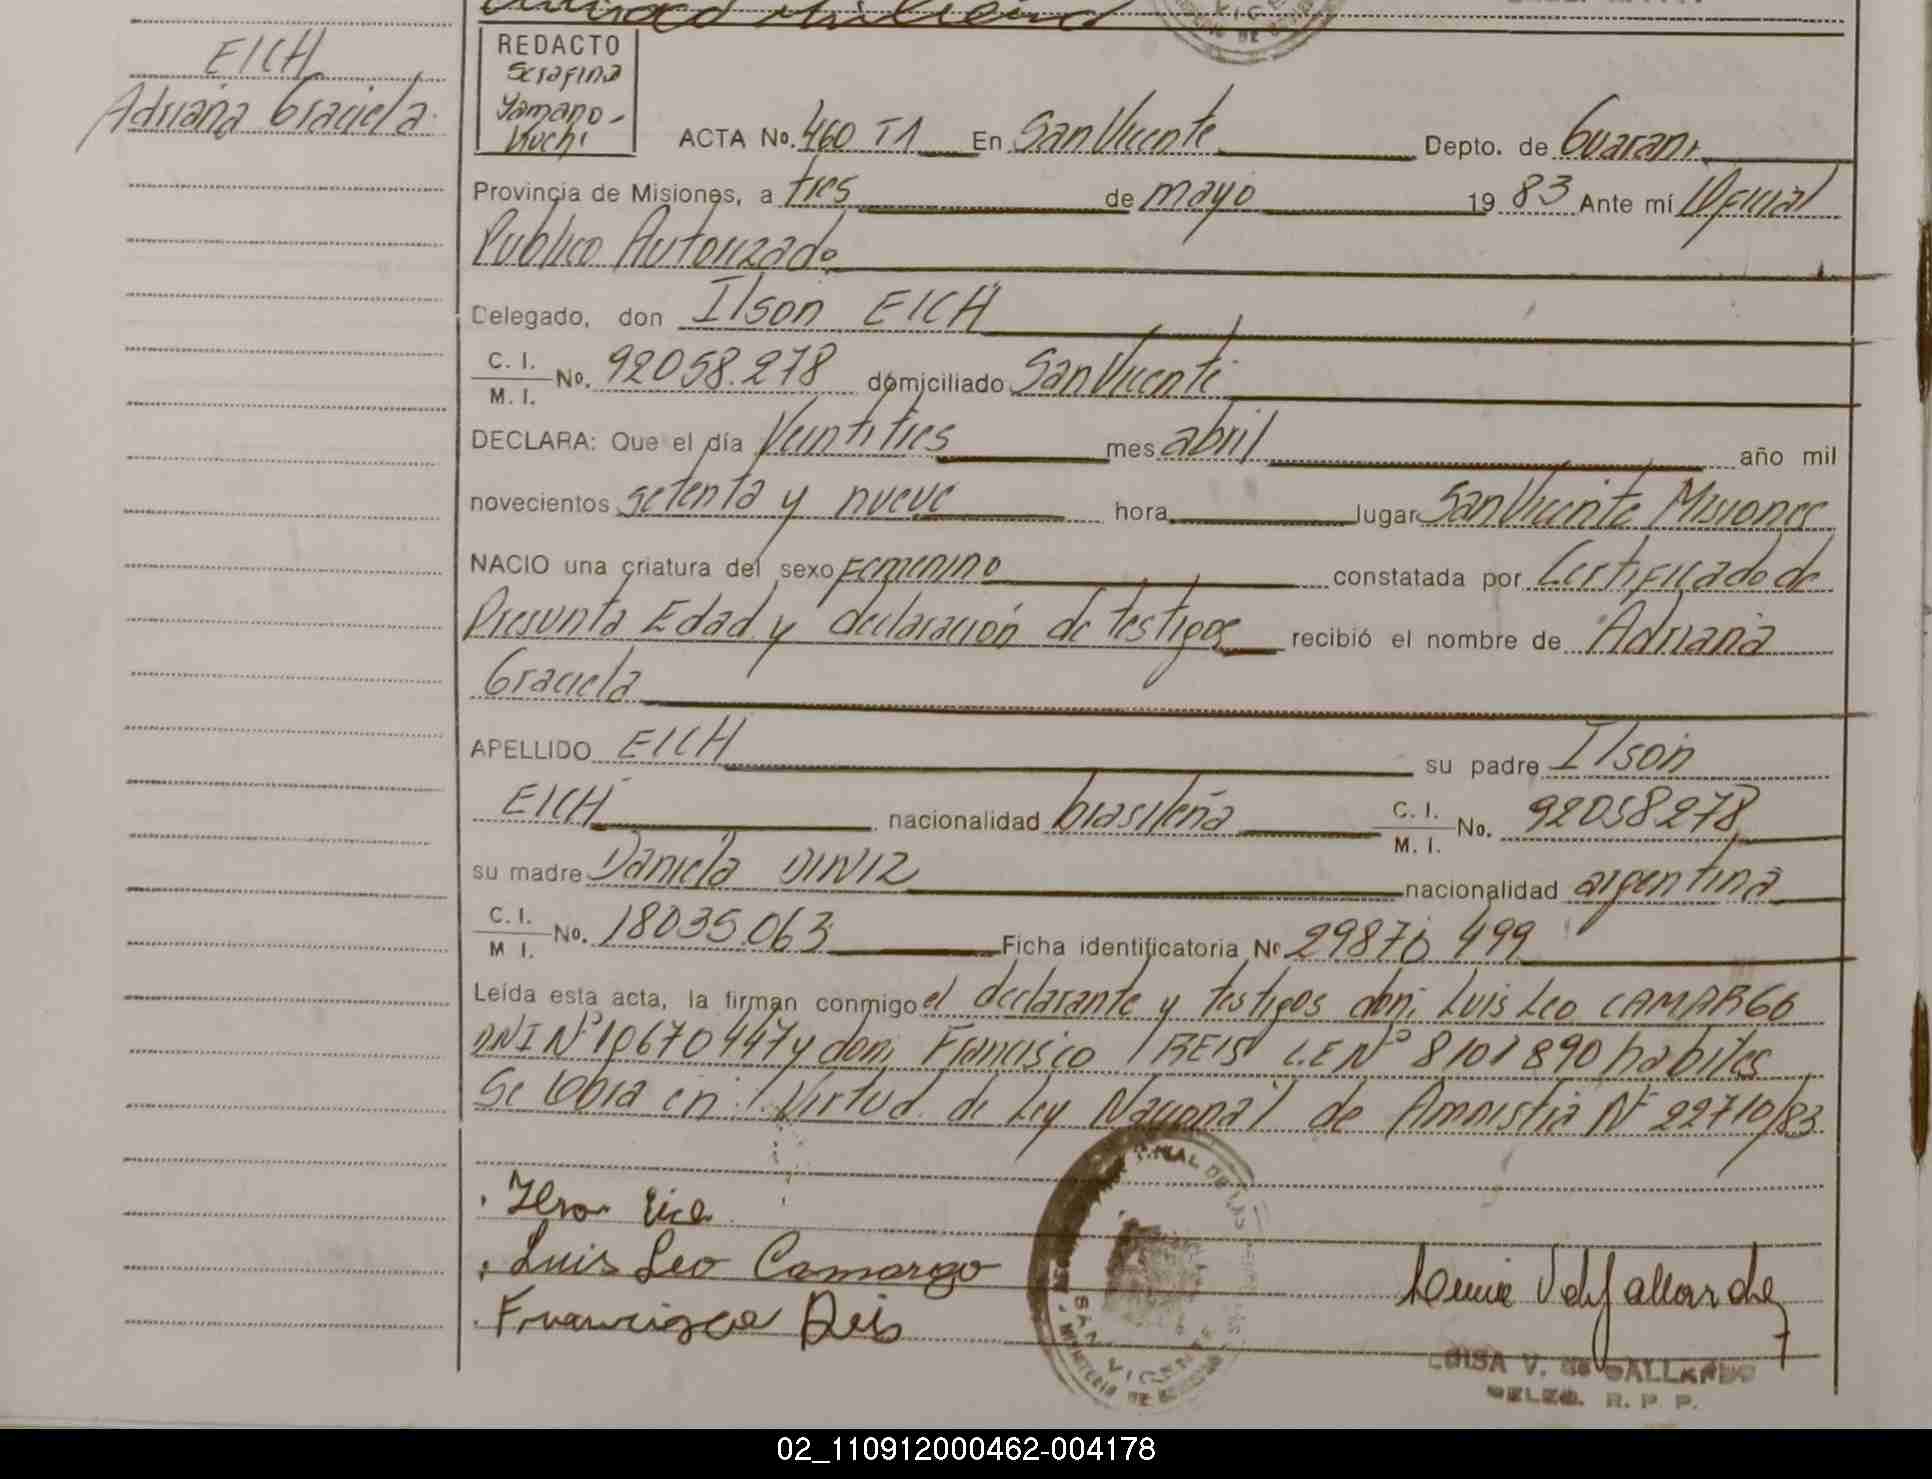 EICH
Adriana Graciela
REDACTO
Serafina
Yamano-
kuchi
ACTA No. 460 T1 En San Vicente Depto. de Guarani
Provincia de Misiones, a tres de mayo 1983 Ante mí Oficial
Publico Autorizado
Delegado, don Ilson EICH
C. I.
M. I. No. 92058.278 domiciliado San Vicente
DECLARA: Que el día Veintitres mes abril año mil
novecientos setenta y nueve hora lugar San Vicente Misiones
NACIO una criatura del sexo Femenino constatada por Certificado de
Presunta Edad y declaración de testigos recibió el nombre de Adriana
Graciela
APELLIDO EICH su padre Ilson
EICH nacionalidad brasileña C. I.
M. I. No. 92058278
su madre Daniela DINIZ nacionalidad argentina
C. I.
M I. No. 18035.063 Ficha identificatoria Nr 29870 499
Leída esta acta, la firman conmigo el declarante y testigos don: Luis Leo CAMARGO
DNI Nº 10670447 y don: Francisco REIS L.E Nº 8101890 habiles
Se labra en Virtud de Ley Nacional de Amnistia Nº 22710/83
Luis Leo Camargo
Francisco Reis
SAN VICENTE
LUISA V. de GALLARDO
DELEG. R. P. P.
02_110912000462-004178